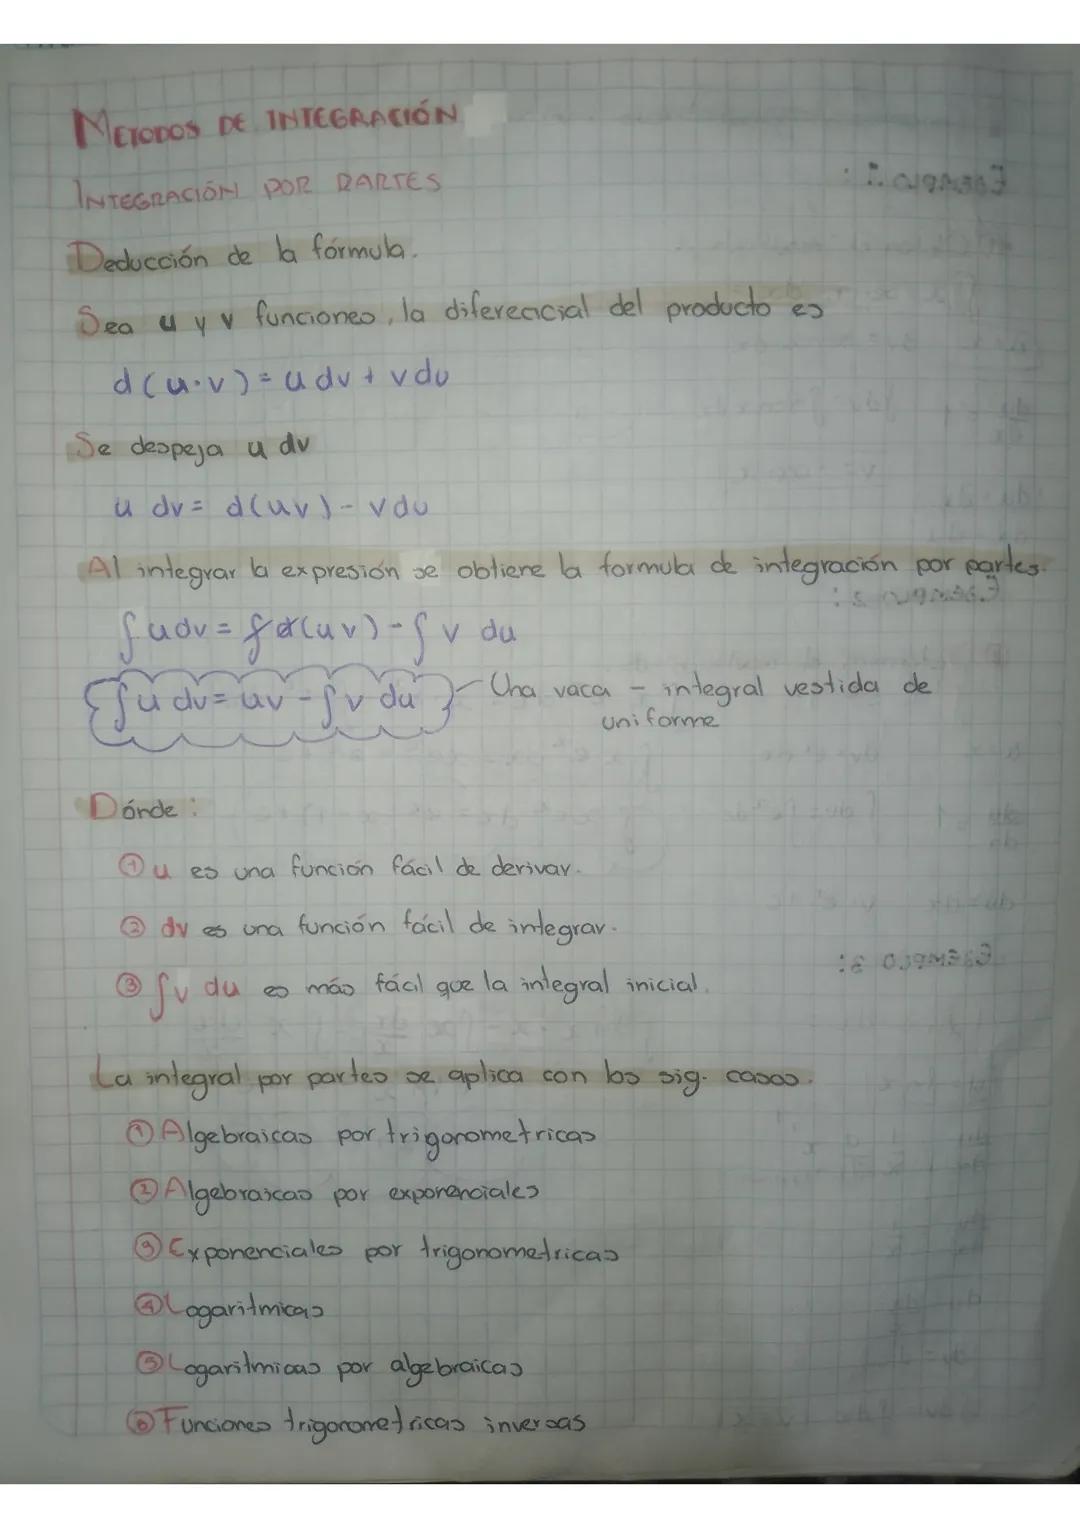 METODOS DE INTEGRACIÓN
INTEGRACIÓN POR PARTES
Deducción de la fórmula.
Sea u y v funciones, la diferencial del producto es
d(u·v)=u dv + v du
Se despeja u dv
u dv = d(uv) - v du
Al integrar la expresión se obtiene la formula de integración por partes.
∫u dv = ∫d(uv) - ∫ v du
∫u dv = uv - ∫v du Una vaca - integral vestida de
uniforme
Dónde:
① u es una función fácil de derivar.
② dv es una función fácil de integrar.
③ ∫v du es más fácil que la integral inicial.
La integral por partes se aplica con los sig. casos.
① Algebraicas por trigonometricas
② Algebraicas por exponenciales
③ Exponenciales por trigonometricas
④ Logaritmicas
⑤ Logaritmicas por algebraicas
⑥ Funciones trigonometricas inversas